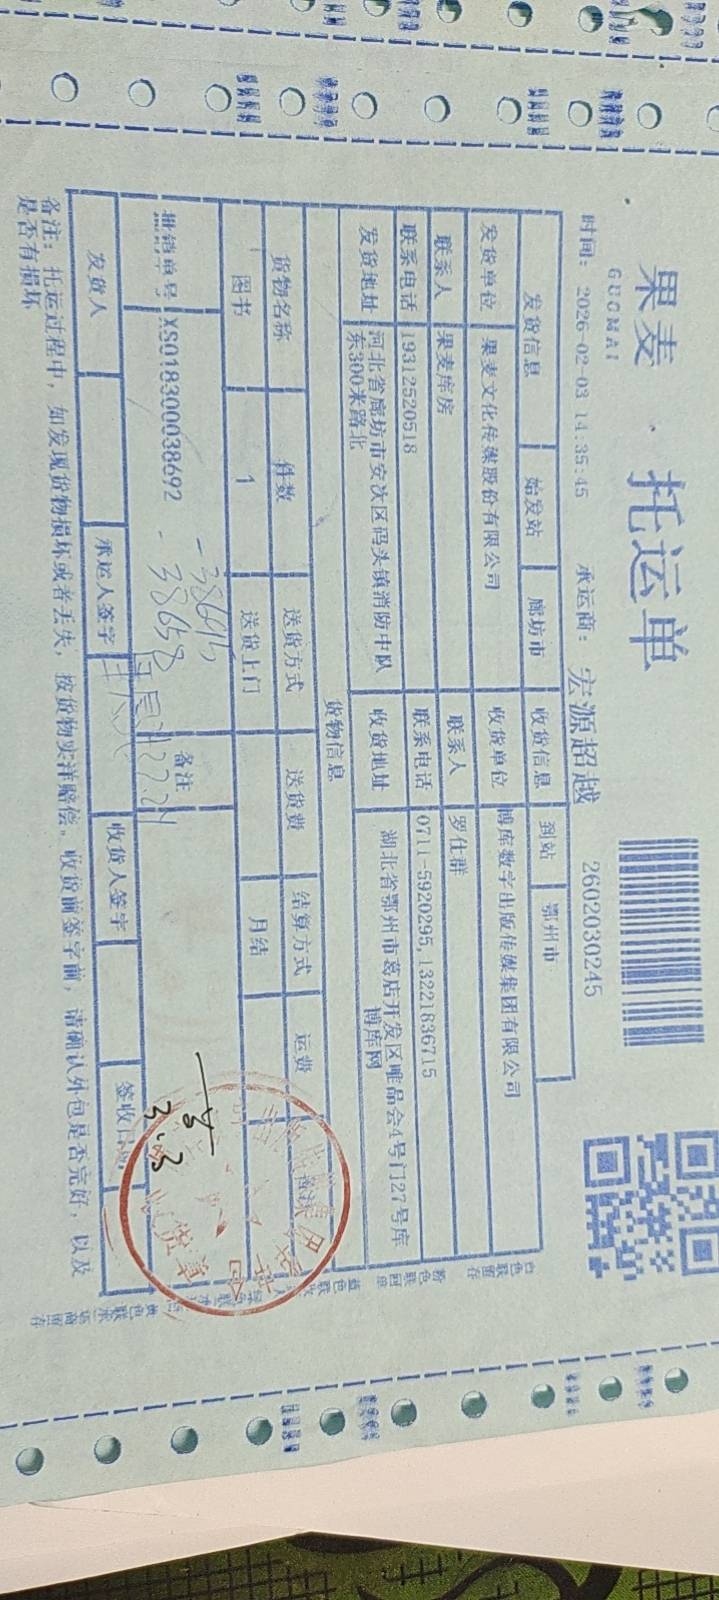 果麦 · 托运单
GUOMAI
时间：2026-02-03 14:35:45 承运商：宏源超越 2602030245
发货信息 始发站 廊坊市 收货信息 到站 鄂州市
发货单位 果麦文化传媒股份有限公司 收货单位 博库数字出版传媒集团有限公司
联系人 果麦库房 联系人 罗仕群
联系电话 19312520518 联系电话 0711-5920295,13221836715
发货地址 河北省廊坊市安次区码头镇消防中队东300米路北 收货地址 湖北省鄂州市葛店开发区唯品会4号门27号库博库网
货物信息
货物名称 件数 送货方式 送货费 结算方式 运费 备注
图书 1 送货上门 月结
批销单号 XS018300038692 备注
-38658
3.3
发货人 承运人签字 收货人签字 签收日期
备注：托运过程中，如发现货物损坏或者丢失，按货物实洋赔偿。收货前签字前，请确认外包是否完好，以及
是否有损坏